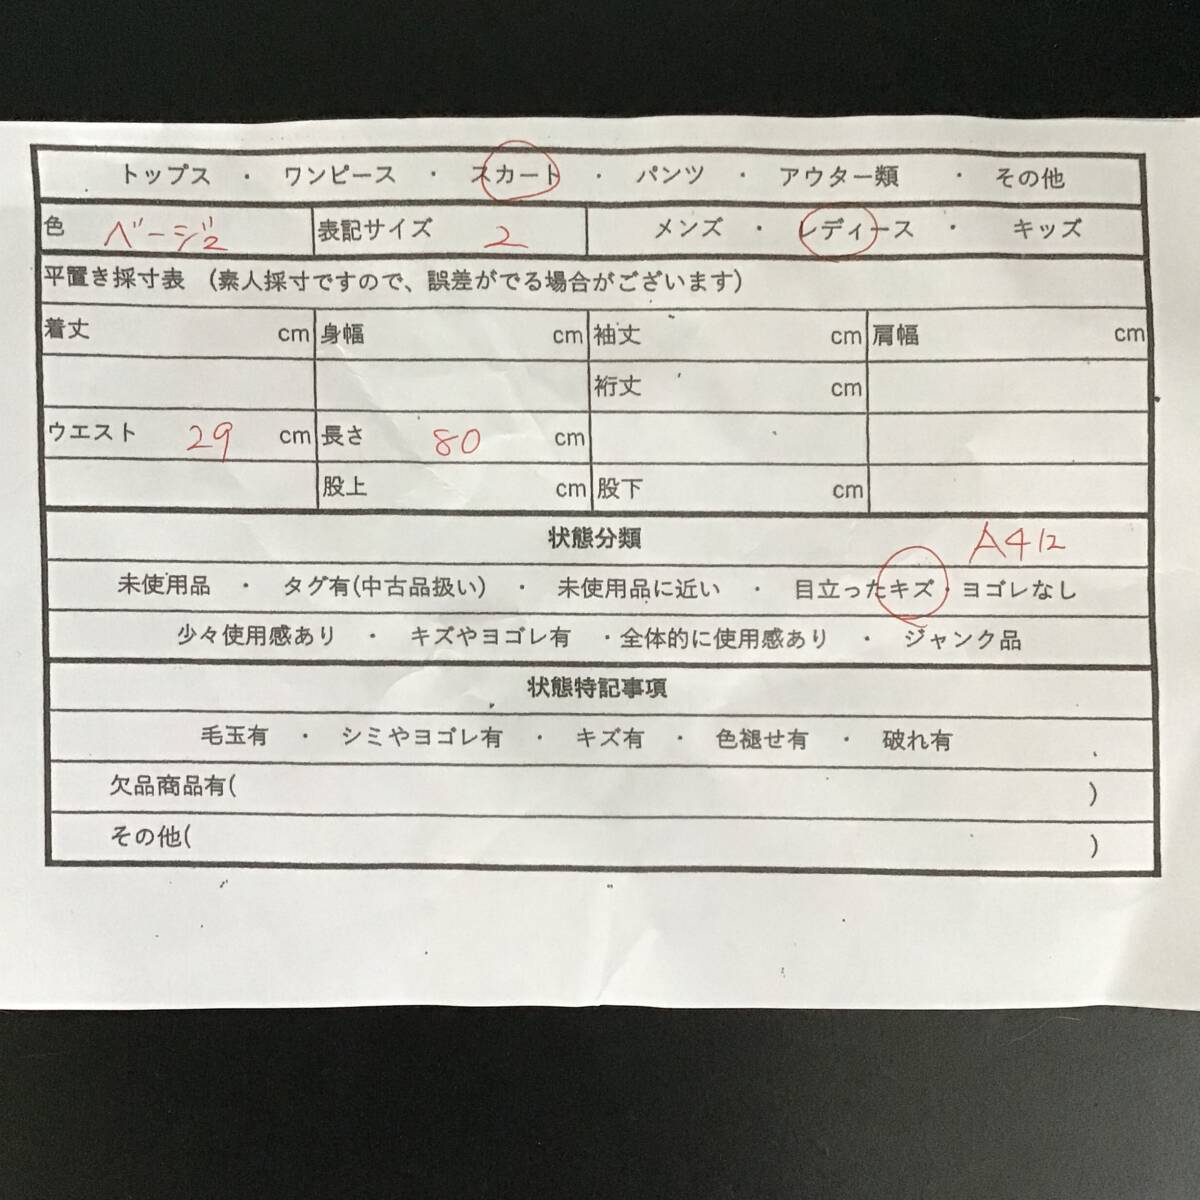 トップス ・ ワンピース ・ スカート ・ パンツ ・ アウター類 ・ その他
色 ベージュ 表記サイズ 2 メンズ ・ レディース ・ キッズ
平置き採寸表 (素人採寸ですので、誤差がでる場合がございます)
着丈 cm 身幅 cm 袖丈 cm 肩幅 cm
裄丈 cm
ウエスト 29 cm 長さ 80 cm
股上 cm 股下 cm
状態分類 A412
未使用品 ・ タグ有(中古品扱い) ・ 未使用品に近い ・ 目立ったキズ・ヨゴレなし
少々使用感あり ・ キズやヨゴレ有 ・全体的に使用感あり ・ ジャンク品
状態特記事項
毛玉有 ・ シミやヨゴレ有 ・ キズ有 ・ 色褪せ有 ・ 破れ有
欠品商品有( )
その他( )